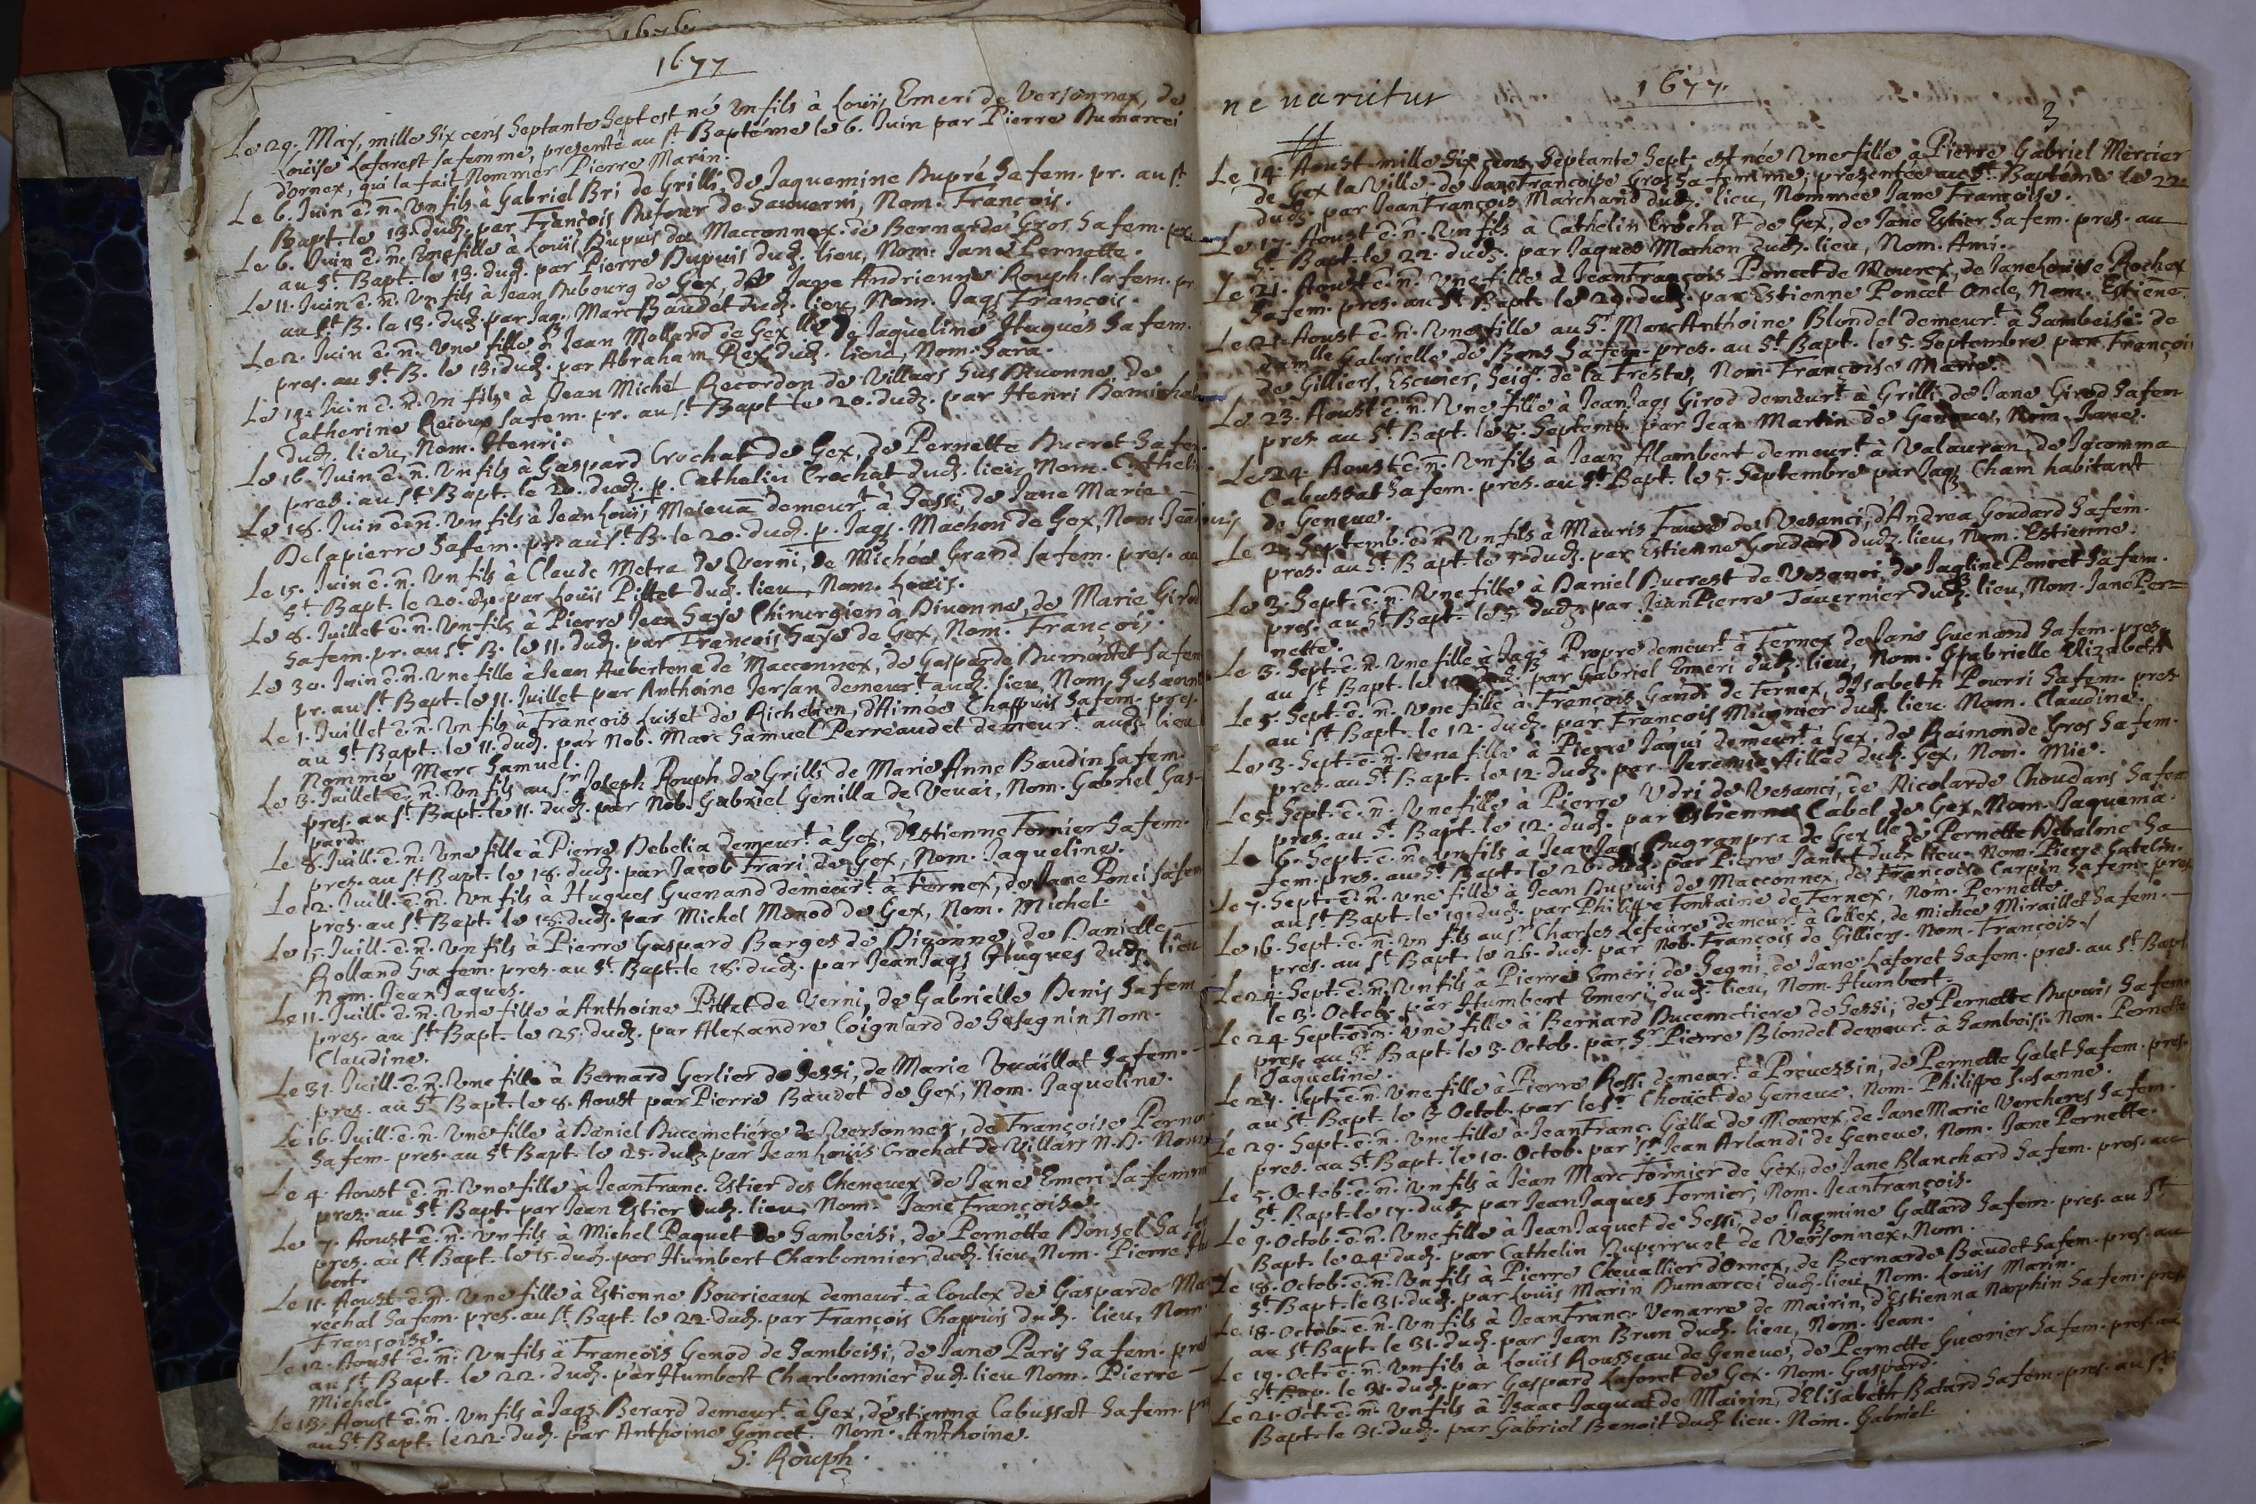 1676
1677
Le 29. May, mille Six cens Septante Sept est né Un fils à Louïs Emeri de Versonnex, de
Louïse Laforest sa femme, presenté au st Baptéme le 6. Juin par Pierre Dumarcei
d'ornex, qui la fait Nommer Pierre Marin.
Le 6. Juin e. n. Un fils à Gabriel Bri de Grilli, de Jaquemine Dupré Sa fem. pr. au st
Bapt. le 13. dudz. par François Dufour de Sauverni, Nom. François.
Le 6. Juin e. n. Une fille à Louïs Dupuis de Macconnex. de Bernarde Gros Sa fem. pre.
au St. Bapt. le 13. dudz. par Pierre Dupuis dudz. lieu, Nom. Jane Pernette.
Le 11. Juin e. n. Un fils à Jean Dubourg de Gex, de Jane Andrienne Rouph. sa fem. pr.
au st B. le 13. dudz. par Jaq. Marc Baudet dudz. lieu, Nom. Jaqs François.
Le 2. Juin e. n. Une fille à Jean Mollard de Gex lle de Jaqueline Hugues Sa fem.
pres. au St B. le 13. dudz. par Abraham Rex dudz. lieu, Nom. Sara.
Le 13. Juin e. n. Un fils à Jean Michel Recordon de Villars Sus Divonne de
Catherine Sa fem. pr. au st Bapt le 20. dudz. par Henri Demichel
dudz. lieu, Nom. Henri.
Le 16. Juin e. n. Un fils à Gaspard Crochat de Gex, de Pernette Ducret Sa fem.
pres. au st Bapt. le 20. dudz. p. Cathelin Crochat dudz. lieu, Nom. Cathelin
Le 18. Juin e. n. Un fils à Jean Louïs demeurt à Sessi, de Jane Marie
Delapierre Sa fem. pr. au st B. le 20. dudz. p. Jaqs. Machon de Gex, Nom Jean Louïs
Le 15. Juin e. n. Un fils à Claude Metra de Verni, de Michee Grand sa fem. pres. au
St Bapt. le 20. dz. par Louïs Pillet dudz. lieu Nom. Louïs.
Le 8. Juillet e. n. Un fils à Pierre Jean Saye Chirurgien à Divonne, de Marie Girod
Sa fem. pr. au st B. le 11. dudz. par François Saye de Gex, Nom. François.
Le 30. Juin e. n. Une fille à Jean Auberten de Macconnex, de Gasparde Dumontet Sa fem
pr. au st Bapt. le 11. Juillet par Anthoine Jersan demeurt audz. lieu, Nom. Susanne
Le 1. Juillet e. n. Un fils à François Luiset de Richelien, d'Aimee Chappuis Sa fem. pres.
au St Bapt. le 11. dudz. par Nob. Marc Samuel Perreaudet demeurt audz. lieu
Nommé Marc Samuel.
Le 3. Juillet e. n. Un fils au sr Joseph Rouph de Grilli de Marie Anne Baudin Sa fem.
pres. au st Bapt. le 11. dudz. par Nob. Gabriel Genilla de Vevai, Nom. Gabriel Gas-
pard.
Le 8. Juill. e. n. Une fille à Pierre Debelia demeurt à Gex, d'Estienne Fornier Sa fem.
pres. au st Bapt. le 18. dudz. par Jacob Frari de Gex, Nom. Jaqueline.
Le 12. Juill. e. n. Un fils à Hugues Guenand demeurt à Fernex, de Jane Ponci Sa fem
pres. au St Bapt. le 18. dudz. par Michel Monod de Gex, Nom. Michel.
Le 15. Juill. e. n. Un fils à Pierre Gaspard Barges de Divonne, de Danielle
Rolland Sa fem. pres. au St Bapt. le 18. dudz. par Jean Jaqs Hugues dudz. lieu
Nom. Jean Jaques.
Le 11. Juill. e. n. Une fille à Anthoine Pillet de Verni, de Gabrielle Denis Sa fem
pres. au st Bapt. le 25. dudz. par Alexandre Coignard de Nom.
Claudine.
Le 31. Juill. e. n. Une fille à Bernard Gerlier de Sessi, de Marie Vuaillat Sa fem.
pres. au St Bapt. le 8. Aoust par Pierre Baudet de Gex, Nom. Jaqueline.
Le 16. Juill. e. n. Une fille à Daniel Ducemetiére de Versonnex, de Françoise
Sa fem. pres. au St Bapt. le 25. dudz par Jean Louïs Crochat de Villars N.D. Nom
Le 4. Aoust e. n. Une fille à Jean Franc. Estier des Cheneuex de Jane Emeri Sa femme
pres. au St Bapt. par Jean Estier dudz. lieu, Nom. Jane Françoise.
Le 7. Aoust e. n. Un fils à Michel Paquet de Sambeisi, de Pernette Donzel Sa fem
pres. au st Bapt. le 15. dudz. par Humbert Charbonnier dudz. lieu, Nom. Pierre Hum
bert.
Le 11. Aoust. e. n. Une fille à Estienne Bourieaux demeurt à Coulex de Gasparde Ma
rechal Sa fem. pres. au st Bapt. le 22. dudz. par François Chappuis dudz. lieu, Nom
Françoise.
Le 12. Aoust e. n. Un fils à François Genod de Sambeisi, de Jane Paris Sa fem. pres
au st Bapt. le 22. dudz. par Humbert Charbonnier dudz. lieu Nom. Pierre
Michel.
Le 13. Aoust e. n. Un fils à Jaqs Berard demeurt à Gex, d'Estienna Cabussat Sa fem. pre
au St Bapt. le 22. dudz. par Anthoine Goncet. Nom. Anthoine.
S. Rouph.
ne varietur
1677.
3
Le 14. Aoust mille Six cens Septante Sept est née Une fille à Pierre Gabriel Mercier
de Gex la Ville, de Jane Françoise Gros Sa femme, presentée au St Baptéme le 22.
dudz. par Jean François Marchand dudz. lieu, Nommée Jane Françoise.
Le 17. Aoust e. n. Un fils à Cathelin Crochat de Gex, de Jane Estier Sa fem. pres. au
St Bapt. le 22. dudz. par Jaques Machon dudz. lieu, Nom. Ami.
Le 21. Aoust e. n. Une fille à Jean François Poncet de Mourex, de Jane Louise Rochex
Sa fem. pres. au St Bapt. le 29. dudz. par Estienne Poncet Oncle, Nom. Estiene.
Le 21. Aoust e. n. Une fille au Sr Marc Anthoine Blondel demeurt à Sambeisi de
Damlle Gabrielle de Bons Sa fem. pres. au St Bapt. le 5. Septembre par François
de Gilliers, Escuier, Seigr. de la Treste, Nom. Françoise Marie.
Le 23. Aoust e. n. Une fille à Jean Jaqs Girod demeurt à Grilli de Jane Girod Sa fem
pres. au St Bapt. le 5. Septemb. par Jean Martin de Geneve, Nom. Jane.
Le 24. Aoust e. n. Un fils à Jean Alambert demeurt à Valauran, de Jacomma
Cabussat Sa fem. pres. au St Bapt. le 5. Septembre par Jaqs Cham habitant
de Geneve.
Le 2. Septemb. e. n. Un fils à Mauris Favre de Vesanci, d'Andrea Goudard Sa fem.
pres. au St Bapt. le 5. dudz. par Estienne Goudard dudz. lieu, Nom. Estienne.
Le 3. Sept. e. n. Une fille à Daniel Ducrest de Vesanci, de Jaqline Poncet Sa fem.
pres. au St Bapt. le 5. dudz. par Jean Pierre Tavernier dudz. lieu, Nom. Jane Per=
nette.
Le 3. Sept. e. n. Une fille à Jaqs Propre demeurt à Fernex de Jane Guenand Sa fem. pres.
au St Bapt. le 12. dudz. par Gabriel Emeri dudz. lieu, Nom. Gabrielle Elizabeth
Le 5. Sept. e. n. Une fille à François Gandi de Fernex, d'Isabeth Pourri Sa fem. pres.
au St Bapt. le 12. dudz. par François Mugnier dudz. lieu. Nom. Claudine.
Le 3. Sept. e. n. Une fille à Pierre Jaqui demeurt à Gex, de Raimonde Gros Sa fem.
pres. au St Bapt. le 12. dudz. par Jeremie Aillod dudz. Gex, Nom. Mie.
Le 5. Sept. e. n. Une fille à Pierre Udri de Vesanci, de Nicolarde Choudans Sa fem
pres. au St Bapt. le 12. dudz. par Estienne Cabel de Gex, Nom. Jaquema.
Le 6. Sept. e. n. Un fils à Jean Jaqs Dugranpra de Gex lle de Pernette Debalme Sa
fem. pres. au St Bapt. le 26. dudz. par Pierre Jantet dudz. lieu. Nom. Pierre Gatelin.
Le 7. Sept. e. n. Une fille à Jean Dupuis de Macconnex, de Françoise Carpin Sa fem. pres.
au St Bapt. le 19. dudz. par Philippe Fontaine de Fernex, Nom. Pernette.
Le 16. Sept. e. n. Un fils au sr Charles Lefeure demeurt à Collex, de Michee Miraillet Sa fem.
pres. au St Bapt. le 26. dudz. par Nob. François de Gilliers. Nom. François.
Le 24. Sept. e. n. Un fils à Pierre Emeri de Segni, de Jane Laforet Sa fem. pres. au St Bapt
le 3. Octob. par Humbert Emeri dudz. lieu, Nom. Humbert.
Le 24. Sept. e. n. Une fille à Bernard Ducemetiere de Sessi, de Pernette Dupuis Sa fem
pres. au St Bapt. le 3. Octob. par Sr Pierre Blondel demeurt à Sambeisi. Nom. Pernette
Jaqueline.
Le 27. Sept. e. n. Une fille à Pierre Rossi demeurt à Prévessin, de Pernette Galet Sa fem. pres.
au St Bapt. le 3 Octob. par le sr Chouet de Geneve. Nom. Philippe Susanne.
Le 29. Sept. e. n. Une fille à Jean Franc. Galla de Mourex, de Jane Marie Vercheres Sa fem.
pres. au St Bapt. le 10. Octob. par sr Jean Arlandi de Geneve, Nom. Jane Pernette.
Le 5. Octob. e. n. Un fils à Jean Marc Fornier de Gex, de Jane Blanchard Sa fem. pres. au
St Bapt. le 17. dudz. par Jean Jaques Fornier, Nom. Jean François.
Le 9. Octob. e. n. Une fille à Jean Jaquet de Sessi, de Jaqmine Gallard Sa fem. pres. au St
Bapt. le 24. dudz. par Cathelin Duperrust de Versonnex, Nom.
Le 18. Octob. e. n. Un fils à Pierre Chevallier d'Ornex, de Bernarde Baudet Sa fem. pres. au
St Bapt. le 31. dudz. par Louis Marin Dumarcei dudz. lieu, Nom. Louïs Marin.
Le 18. Octob. e. n. Un fils à Jean Franc. Venarre de Mairin, d'Estienna Sa fem. pres.
au St Bapt. le 31. dudz. par Jean Brun dudz. lieu, Nom. Jean.
Le 19. Oct. e. n. Un fils à Louïs Rousseau de Geneve, de Pernette Guerrier Sa fem. pres. au
St Bap. le 31. dudz. par Gaspard Laforet de Gex. Nom. Gaspard.
Le 21. Oct. e. n. Un fils à Isaac Jaquet de Mairin, d'Elisabeth Batard Sa fem. pres. au St
Bapt. le 31. dudz. par Gabriel Benoit dudz. lieu. Nom. Gabriel